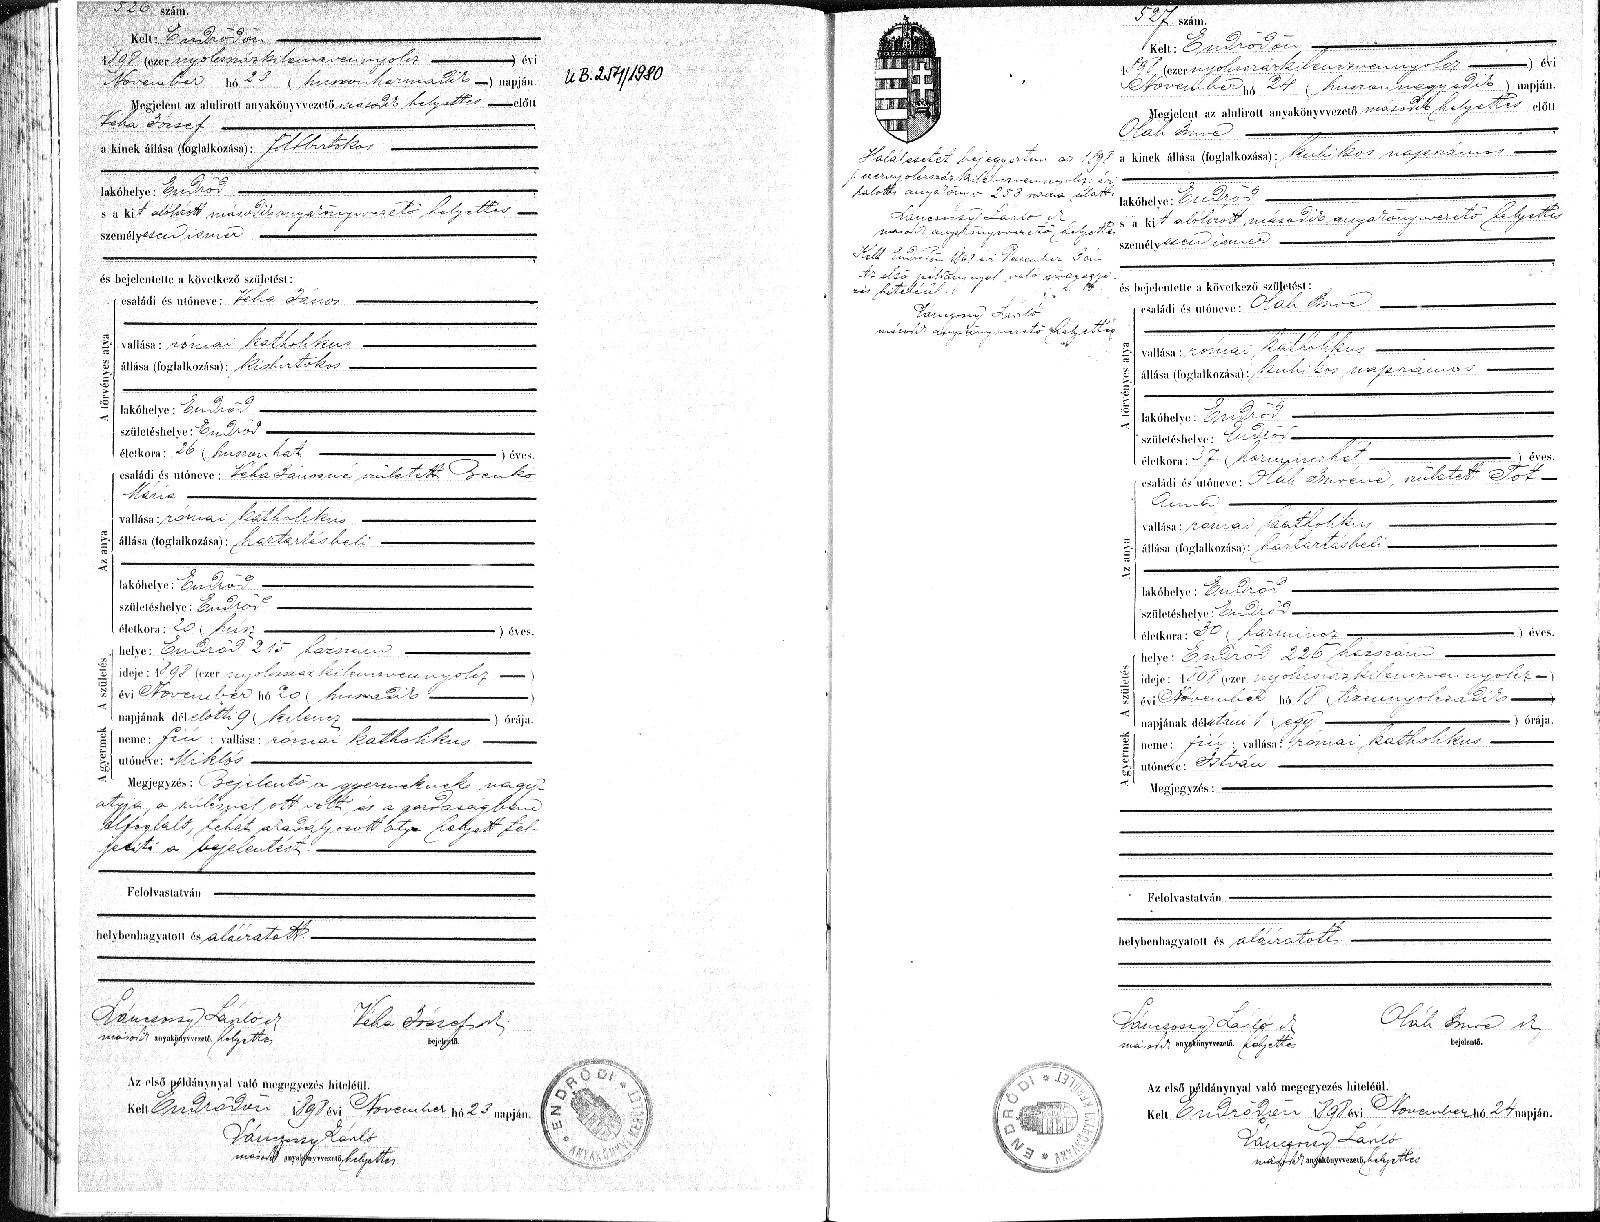 526 szám.
Kelt: Endrődön
1898 (ezer nyolcszázkilenczvennyolcz) évi
November hó 23 (huszonharmadik) napján.
Megjelent az alulirott anyakönyvvezető második helyettes előtt
Veha József
a kinek állása (foglalkozása): földbirtokos
lakóhelye: Endrőd
s a kit alólirott második anyakönyvvezető helyettes
személyesen ismer
és bejelentette a következő születést:
A törvényes atya
családi és utóneve: Veha János
vallása: római katholikus
állása (foglalkozása): kisbirtokos
lakóhelye: Endrőd
születéshelye: Endrőd
életkora: 26 (huszonhat) éves.
Az anya
családi és utóneve: Veha Jánosné született Benkó
Mária
vallása: római katholikus
állása (foglalkozása): háztartásbeli
lakóhelye: Endrőd
születéshelye: Endrőd
életkora: 20 (húsz) éves.
A születés
helye: Endrőd 215 házszám
ideje: 1898 (ezer nyolcszázkilenczvennyolcz)
évi November hó 20 (huszadik)
napjának délelőtti 9 (kilencz) órája.
A gyermek
neme: fiú; vallása: római katholikus
utóneve: Miklós
Megjegyzés: Bejelentő a gyermeknek nagy-
atyja, a szülésnél ott volt, és a gazdaságban
elfoglalt, tehát akadályozott atya helyett tel-
jesíti a bejelentést.
Felolvastatván
helybenhagyatott és aláiratott.
Vánczosy László
második anyakönyvvezető. helyettes
Veha József
bejelentő.
Az első példánynyal való megegyezés hiteléül.
Kelt Endrődön 1898 évi November hó 23 napján.
László
második anyakönyvvezető. helyettes
ENDRŐDI * ANYAKÖNYVI KERÜLET *
U B. 254/1980
Halálesetét bejegyeztem az 1898
halotti anyakönyv 253 száma alatt
László
másod anyakönyvvezető helyettes
Kelt Endrődön 1898 évi December
Az első példánynyal való megegye-
zés hiteléül.
László
másod anyakönyvvezető helyettes
527 szám.
Kelt: Endrődön
1898 (ezer nyolcszázkilenczvennyolcz) évi
November hó 24 (huszonnegyedik) napján.
Megjelent az alulirott anyakönyvvezető második helyettes előtt
Oláh Imre
a kinek állása (foglalkozása): kubikos napszámos
lakóhelye: Endrőd
s a kit alólirott második anyakönyvvezető helyettes
személyesen ismer
és bejelentette a következő születést:
A törvényes atya
családi és utóneve: Oláh Imre
vallása: római katholikus
állása (foglalkozása): kubikos napszámos
lakóhelye: Endrőd
születéshelye: Endrőd
életkora: 37 (harminczhét) éves.
Az anya
családi és utóneve: Oláh Imréné, született Tót
Anna
vallása: római katholikus
állása (foglalkozása): háztartásbeli
lakóhelye: Endrőd
születéshelye: Endrőd
életkora: 30 (harmincz) éves.
A születés
helye: Endrőd 226 házszám
ideje: 1898 (ezer nyolcszázkilenczvennyolcz)
évi November hó 18 (tizennyolczadik)
napjának délutáni 1 (egy) órája.
A gyermek
neme: fiú; vallása: római katholikus
utóneve: István
Megjegyzés:
Felolvastatván
helybenhagyatott és aláiratott
László
másod anyakönyvvezető. helyettes
Oláh Imre
bejelentő.
Az első példánynyal való megegyezés hiteléül.
Kelt Endrődön 1898 évi November hó 24 napján.
László
második anyakönyvvezető. helyettes
ENDRŐDI * ANYAKÖNYVI KERÜLET *